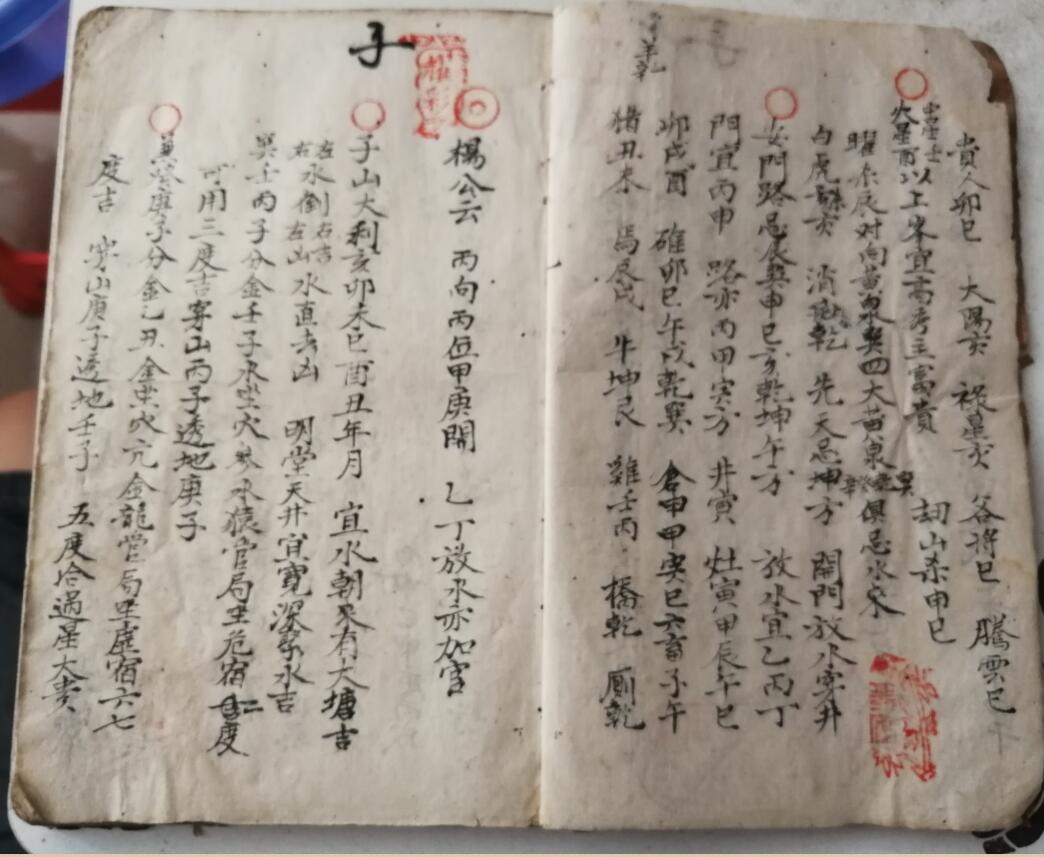 貴人卯巳　太陽亥　祿星亥　谷將巳　騰雲巳
火星酉以上峯宜高秀主富貴　刼山杀申巳
曜杀辰对向黄泉巽四大黄泉俱忌水来
白虎亥　消乾　先天忌坤方　開門放水穿井
女門路忌辰巽申巳亥乾坤午方　放水宜乙丙丁
門宜丙申　路亦丙甲寅方　井寅　灶寅甲辰午巳
卯戌酉　碓卯巳午戌乾寅　倉甲寅巳六畜子午
猪丑未　馬辰戌　牛坤艮　雞壬丙　橋乾　厠乾
羊乾
子
楊公云　丙向丙位甲庚開　乙丁放水亦加官
子山大利亥卯未巳酉丑年月　宜水朝来有大塘吉
左水倒右吉
右水倒左山水直去凶　明堂天井宜寬深聚水吉
巽壬丙子分金壬子水坐穴参水猿管局坐危宿二度
可用三度吉穿山丙子透地庚子
庚子分金乙丑金坐穴亢金龍管局坐虛宿六七
度吉　穿山庚子透地壬子　五度合過星大貴